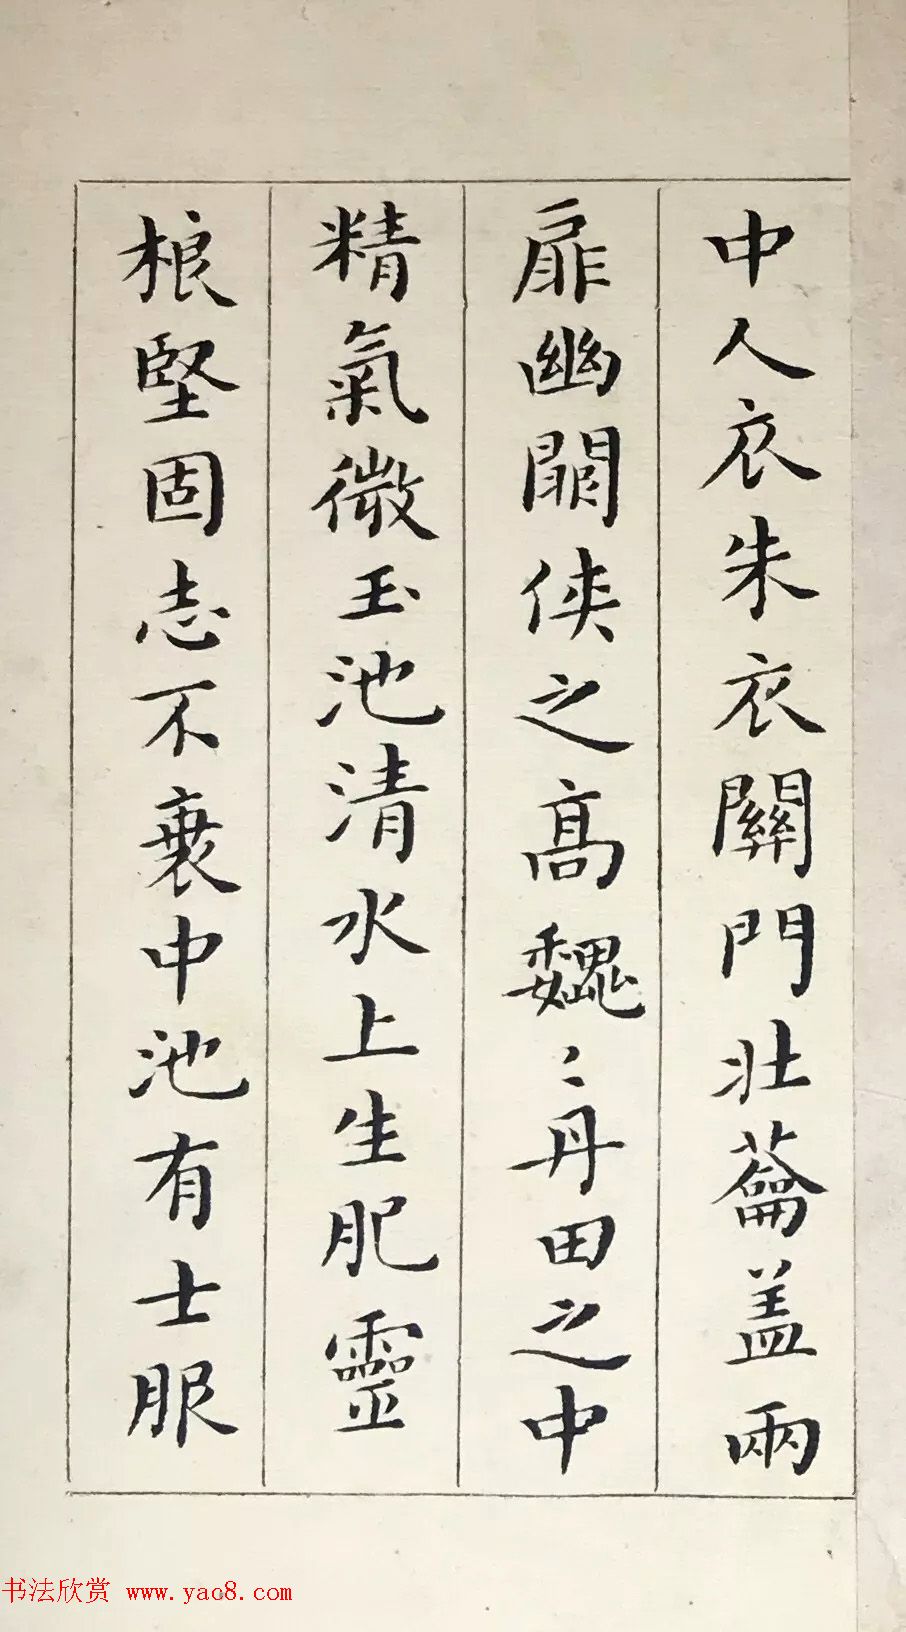 中人衣朱衣關門壯蘥盖兩
扉幽闗侠之高巍〻丹田之中
精氣微玉池清水上生肥靈
根堅固志不衰中池有士服
书法欣赏 www.yac8.com